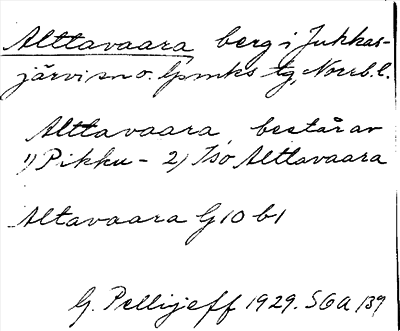 Alttavaara berg i Jukkas-
järvi sn o. lpmks tg, Norrb. l.
Alttavaara, består av
1) Pikku- 2) Iso Alttavaara
Altavaara G10 b1
G. Pellijeff 1929. SOA 139